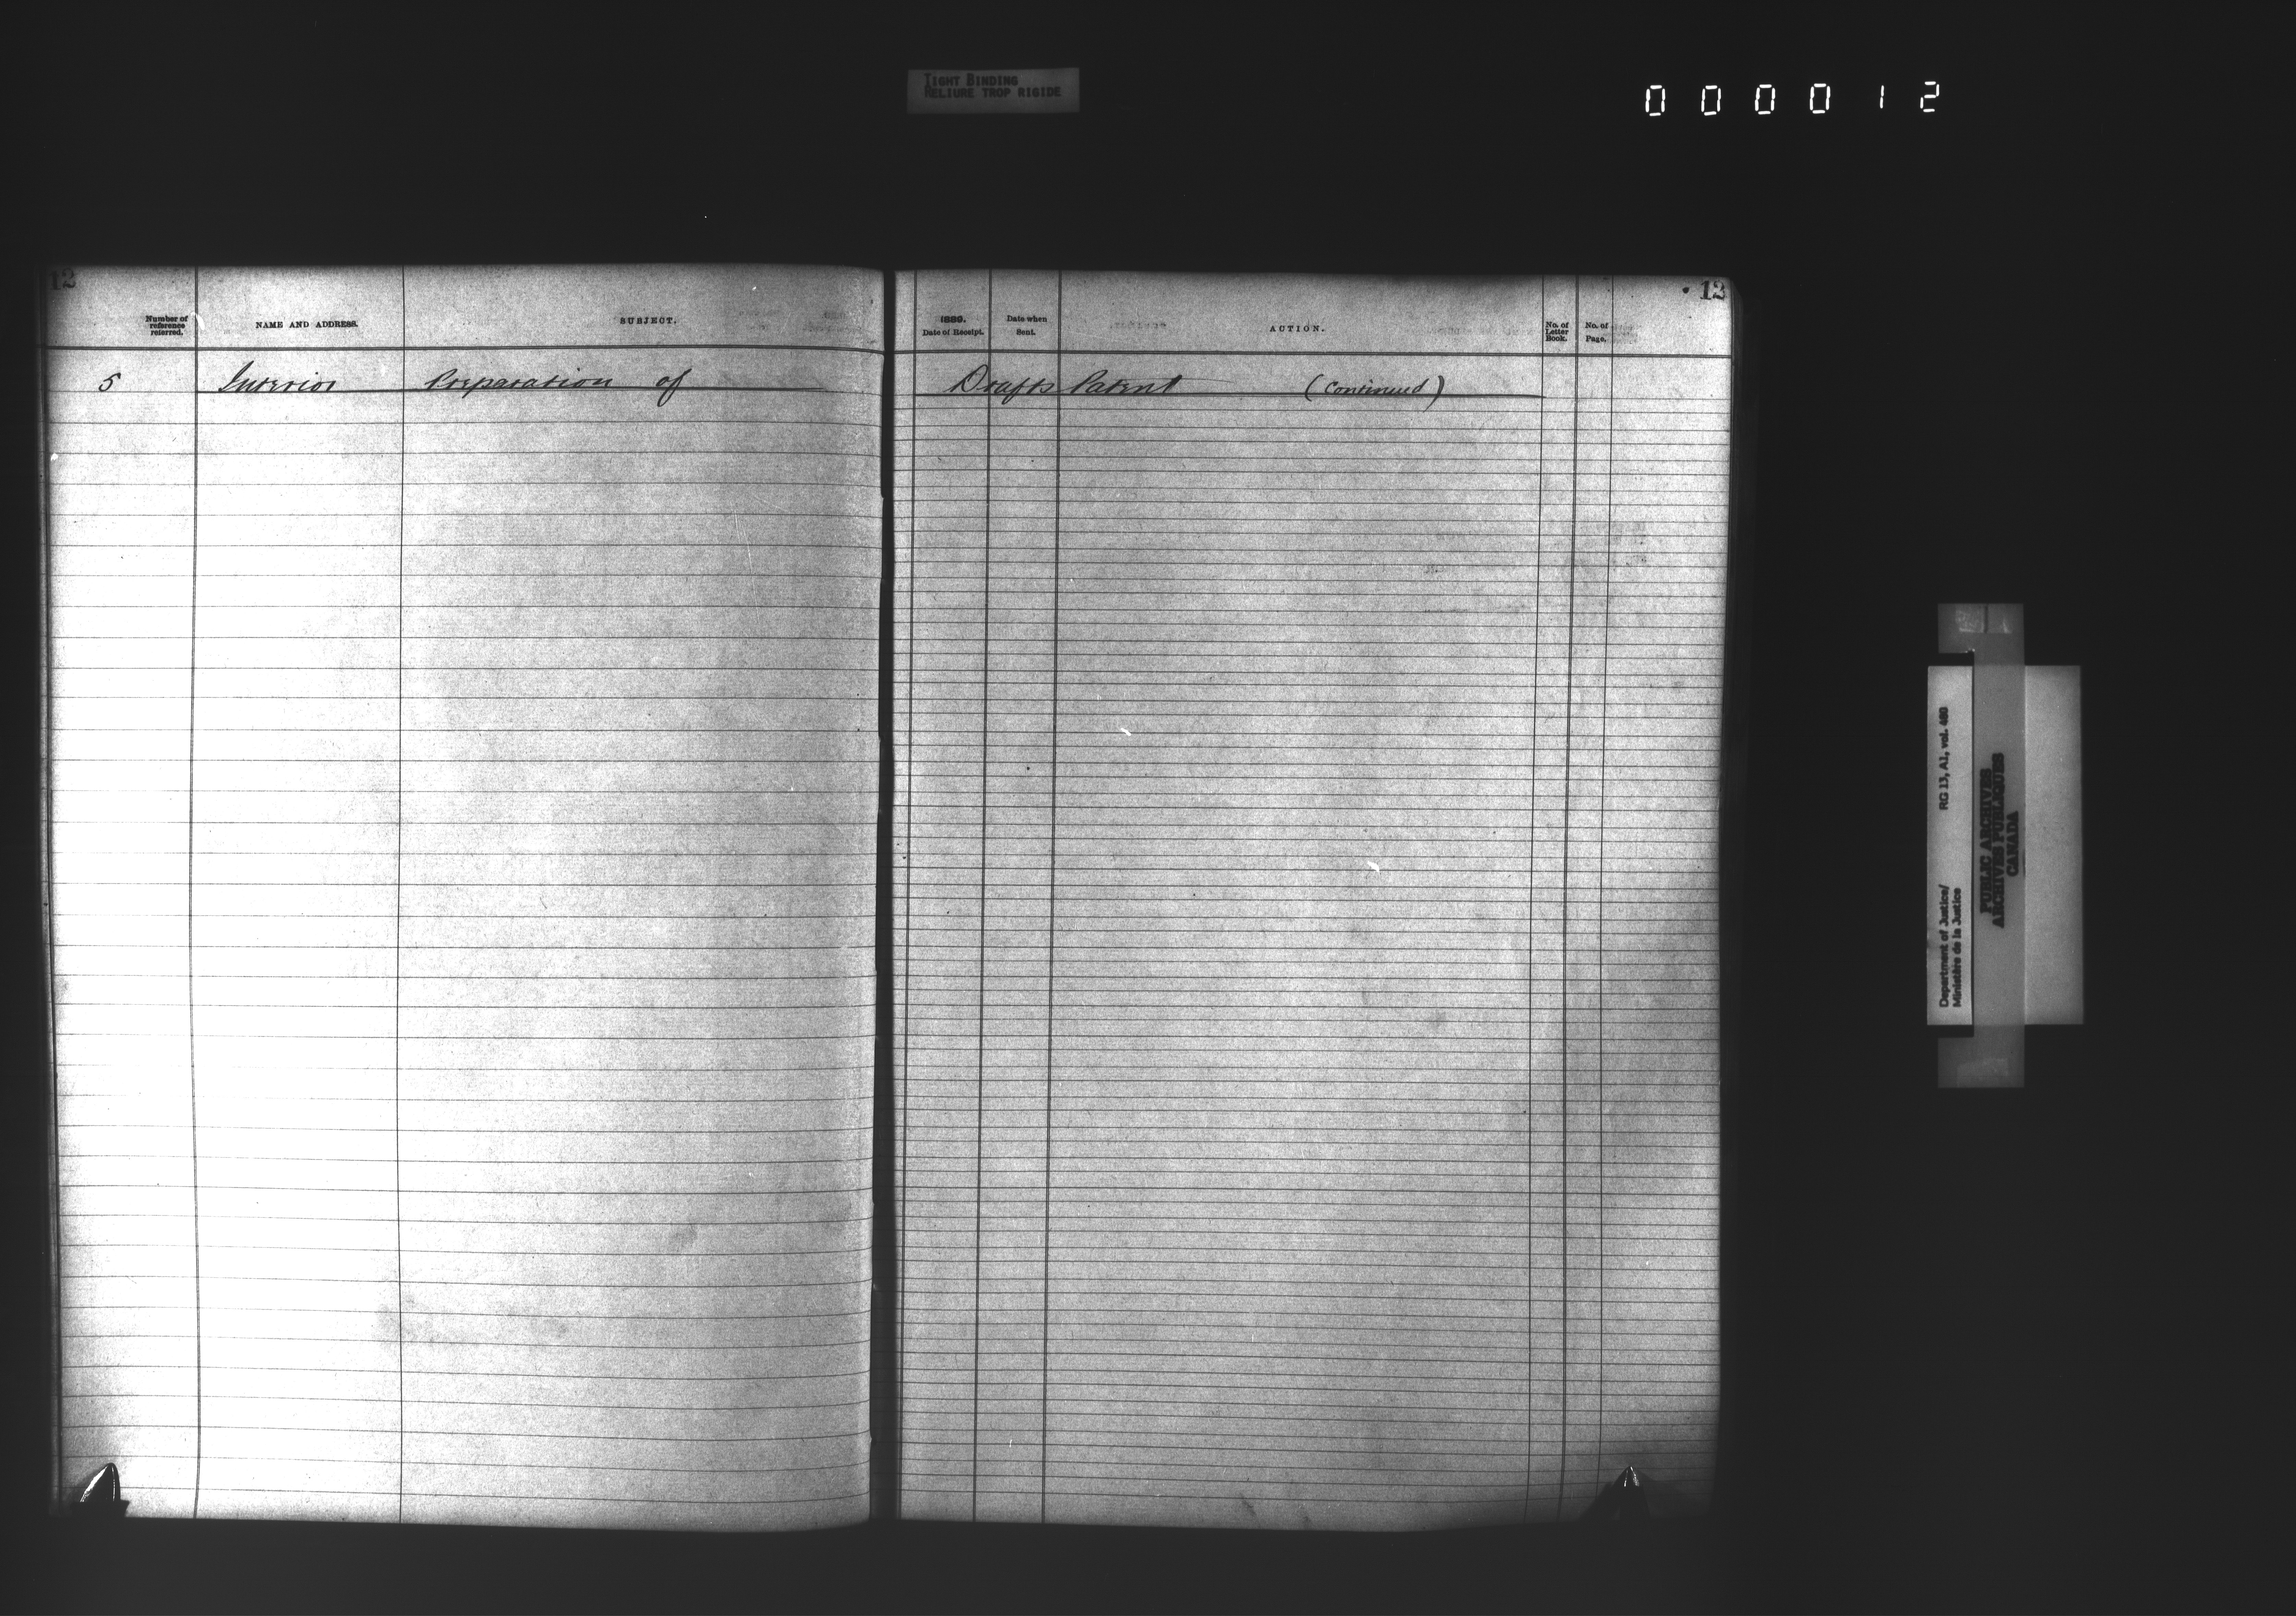 TIGHT BINDING
RELIURE TROP RIGIDE
0 0 0 0 1 2
12
Number of reference referred.
NAME AND ADDRESS.
SUBJECT.
5 Interior Preparation of
12
1889.
Date of Receipt.
Date when Sent.
ACTION.
No. of Letter Book.
No. of Page.
Drafts Patent (Continued)
Department of Justice/ RG 13, A1, vol. 460
Ministère de la Justice
PUBLIC ARCHIVES
ARCHIVES PUBLIQUES
CANADA